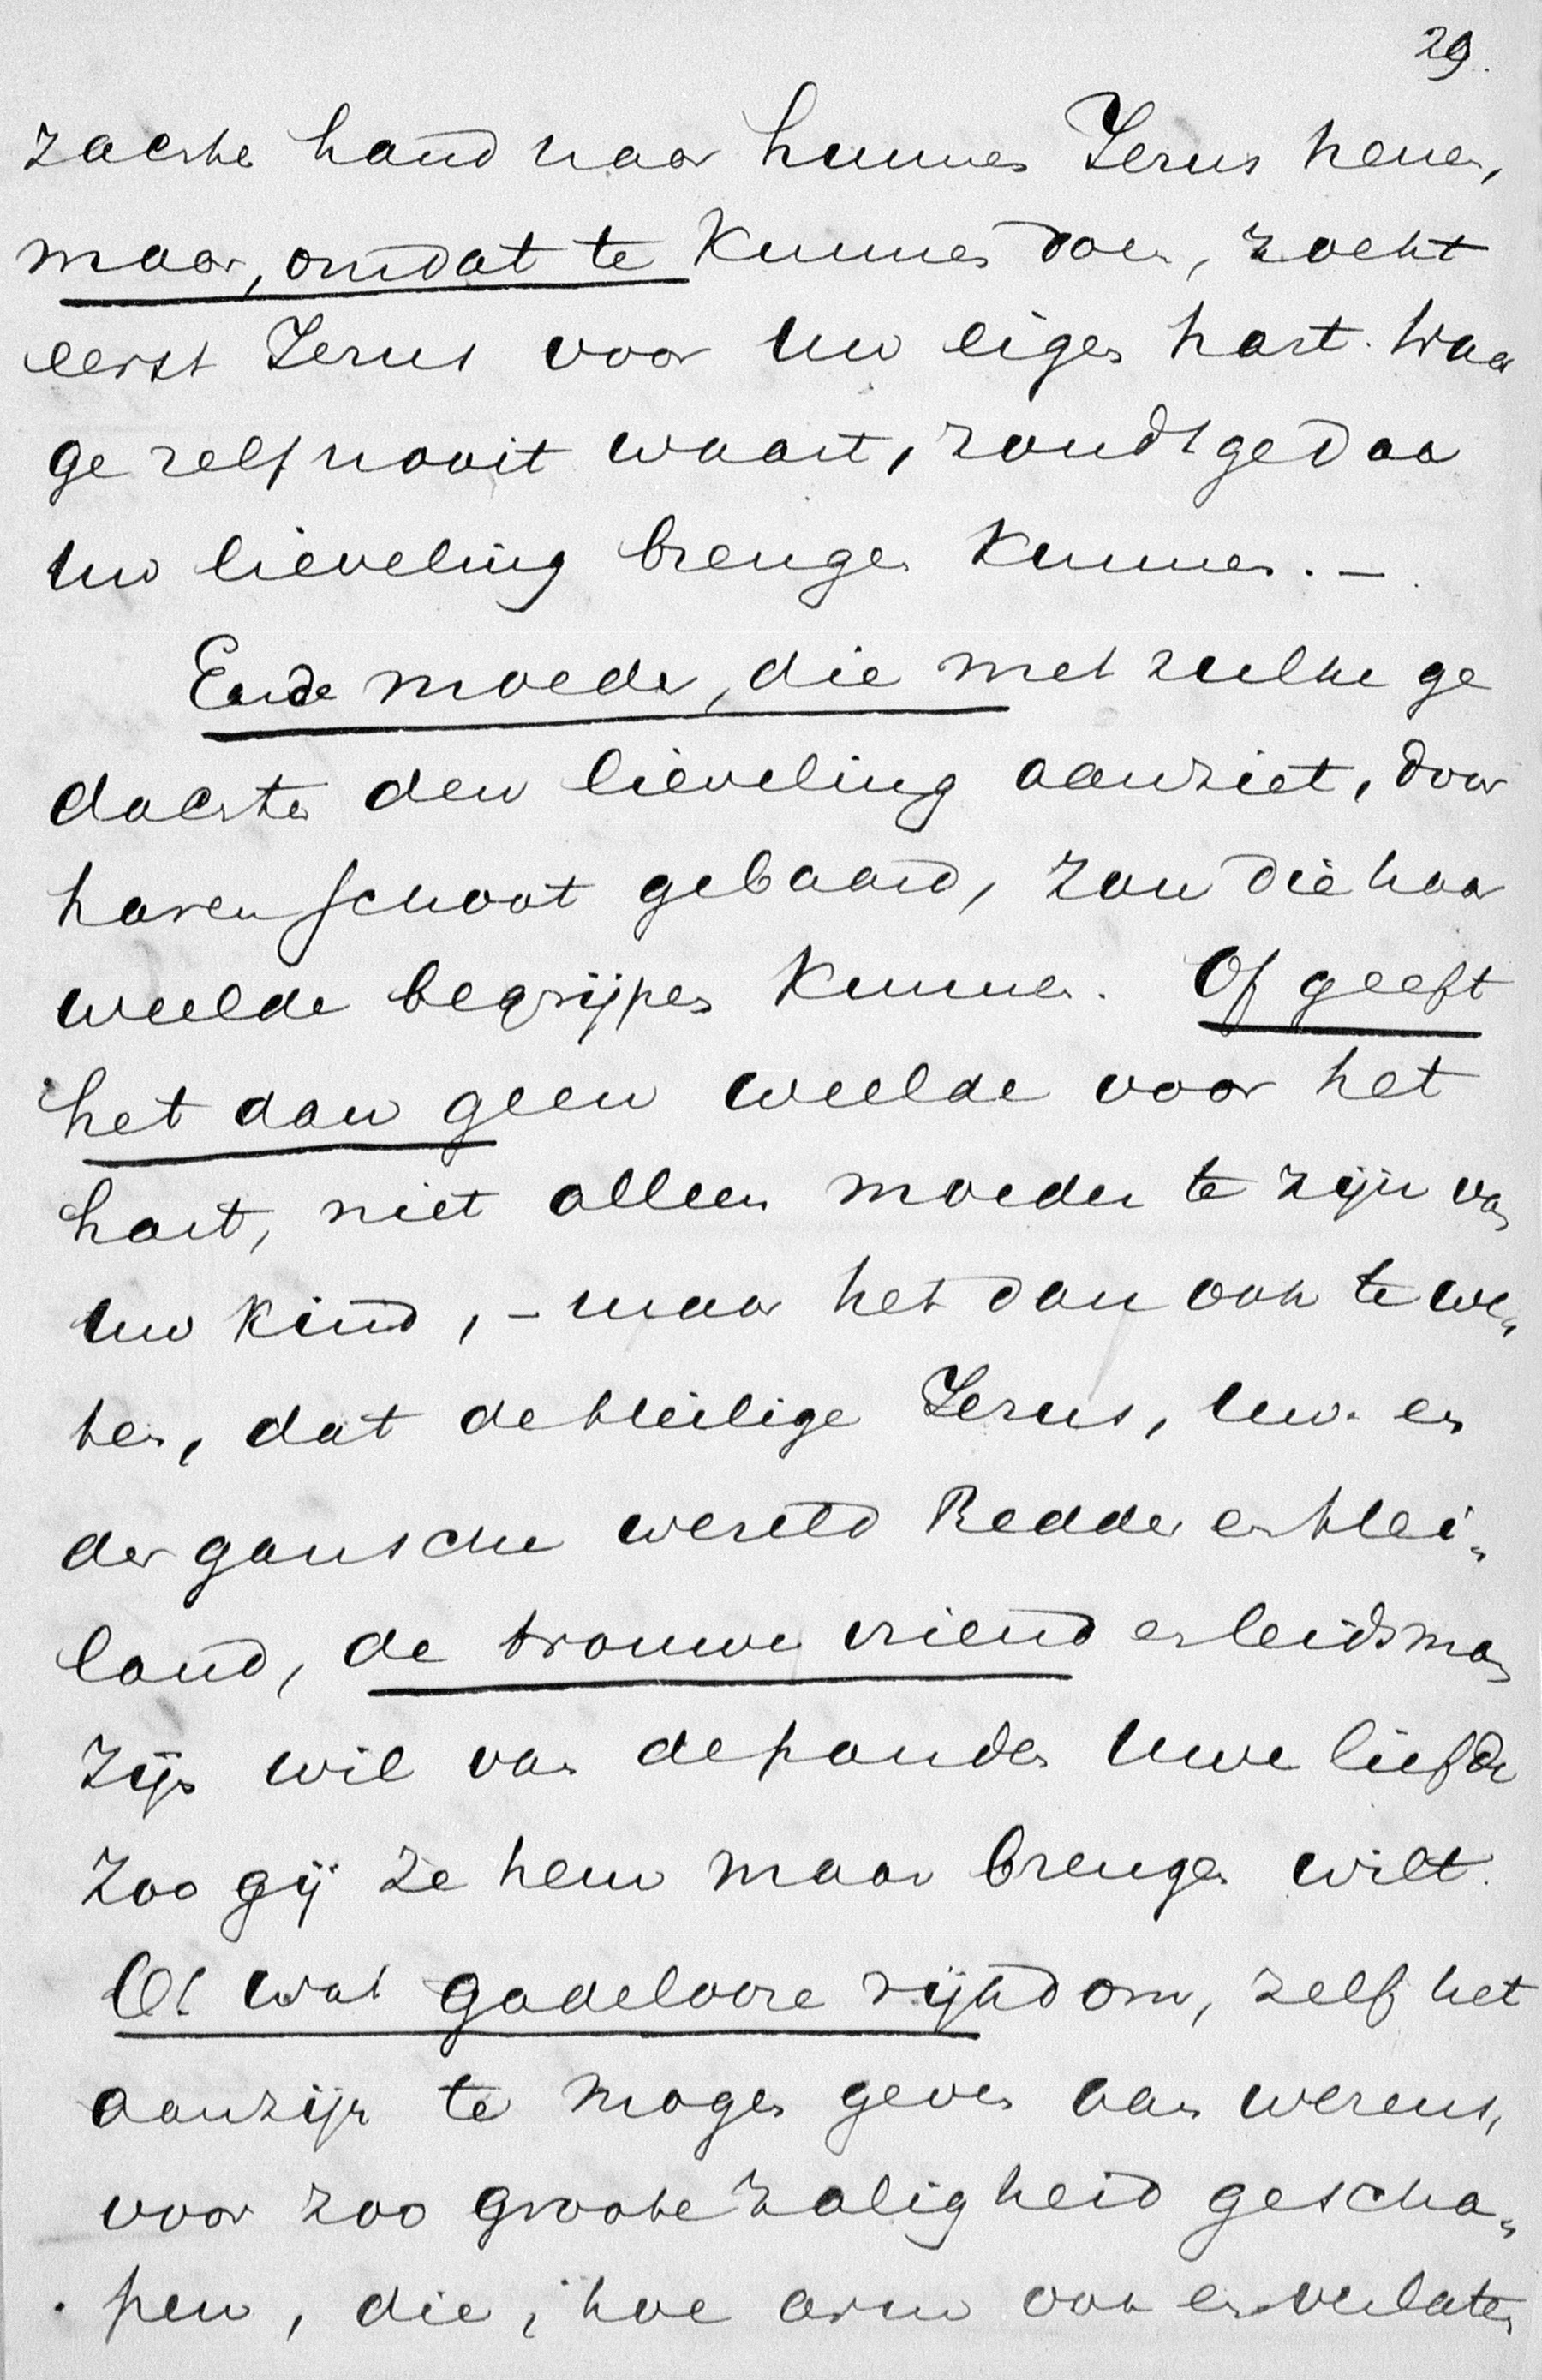 29.
zachte hand naar hunnen Jezus henen,
maar, om dat te kunnen doen, zoekt
eerst Jezus voor uw eigen hart. Waar
ge zelf nooit waart, zoudt ge daar
uw lieveling brengen kunnen. –
En de moeder, die met zulke ge
dachten den lieveling aanziet, door
haren schoot gebaard, zou die haar
weelde begrijpen kunnen. Of geeft
het dan geen weelde voor het
hart, niet alleen moeder te zijn van
uw kind, – maar het dan ook te we„
ten, dat de Heilige Jezus, uw en
der gansche wereld Redder en Hei„
land, de trouwe vriend en leidsman
zijn wil van de panden uwer liefde
zoo gij ze hem maar brengen wilt.
O! wat gadelooze rijkdom, zelf het
aanzijn te mogen geven aan wezens,
voor zoo groote zaligheid gescha„
pen, die, hoe arm ook en verlaten